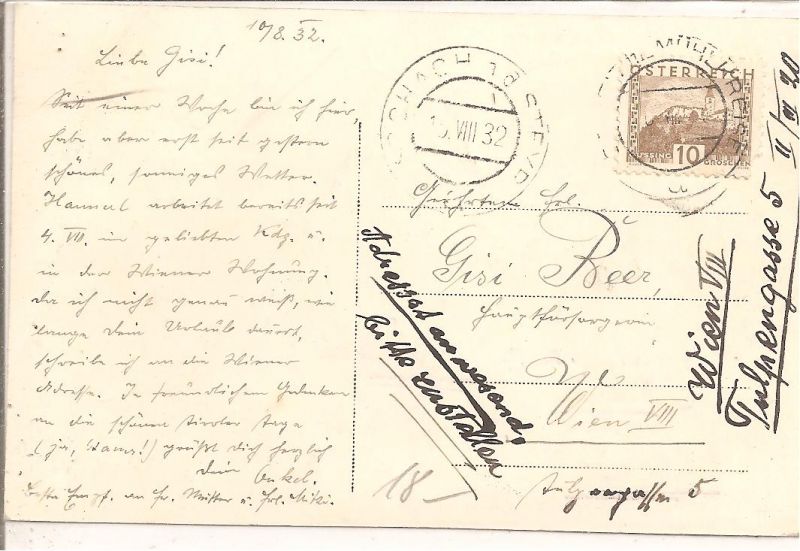 10/8. 32.
Liebe Gisi!
Seit einer Woche bin ich hier,
habe aber erst seit gestern
schönes, sonniges Wetter.
arbeitet bereits seit
4. VIII. im geliebten u.
in der Wiener Wohnung.
Da ich nicht genau weiß, wie
lange Dein Urlaub dauert,
schreibe ich an die Wiener
Adresse. In freundlichem Gedenken
an die schönen Tiroler Tage
(ja, !) grüßt Dich herzlich
Dein Onkel.
Beste Empf. an Fr. Mutter u. Frl. Mitzi.
VIII 32
STEYR
MÜHLKREIS
ÖSTERREICH
10
GROSCHEN
Geehrten Frl.
Gisi Beer,
Hauptfürsorgerin
Wien VIII
Tulpengasse 5
Adressat anwesend,
bitte zustellen
Wien VIII
Tulpengasse 5 II/
18–